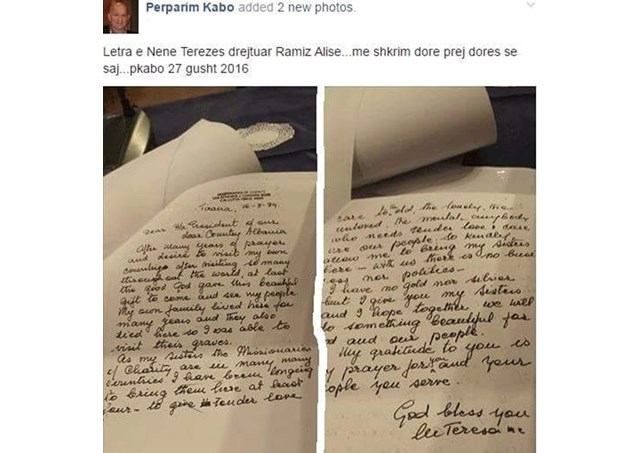 Perparim Kabo added 2 new photos.
Letra e Nene Terezes drejtuar Ramiz Alise...me shkrim dore prej dores se
saj...pkabo 27 gusht 2016
MISSIONARIES OF CHARITY
Tirana, 16-8-89.
Dear Mr President of our
dear Country Albania
After many years of prayer
and desire to visit my own
country after visiting so many
throughout the world, at last
the good God gave this beautiful
gift to come and see my people
My own family lived here for
many years and they also
died here so I was able to
visit their graves.
As my Sisters the Missionaries
of Charity are in many many
countries I have been longing
to bring them here at least
four - to give tender love
care to old, the lonely, the
unloved, the mental - anybody
who needs tender love & care
are our people. So kindly
allow me to bring my Sisters
here - with us there is no
ess nor politics -
I have no gold nor silver
but I give you my Sisters
and I hope together we will
do something beautiful for
and our people.
My gratitude to you is
my prayer for you and your
people you serve.
God bless you
lle Teresa mc